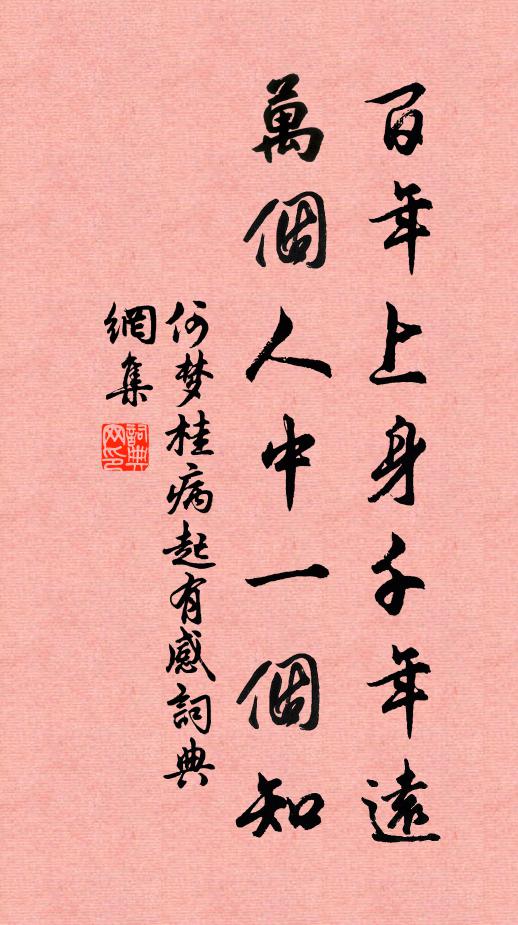 百年上身千年遠
萬個人中一個知
何梦桂病起有感詞典
網集
詞典
网印